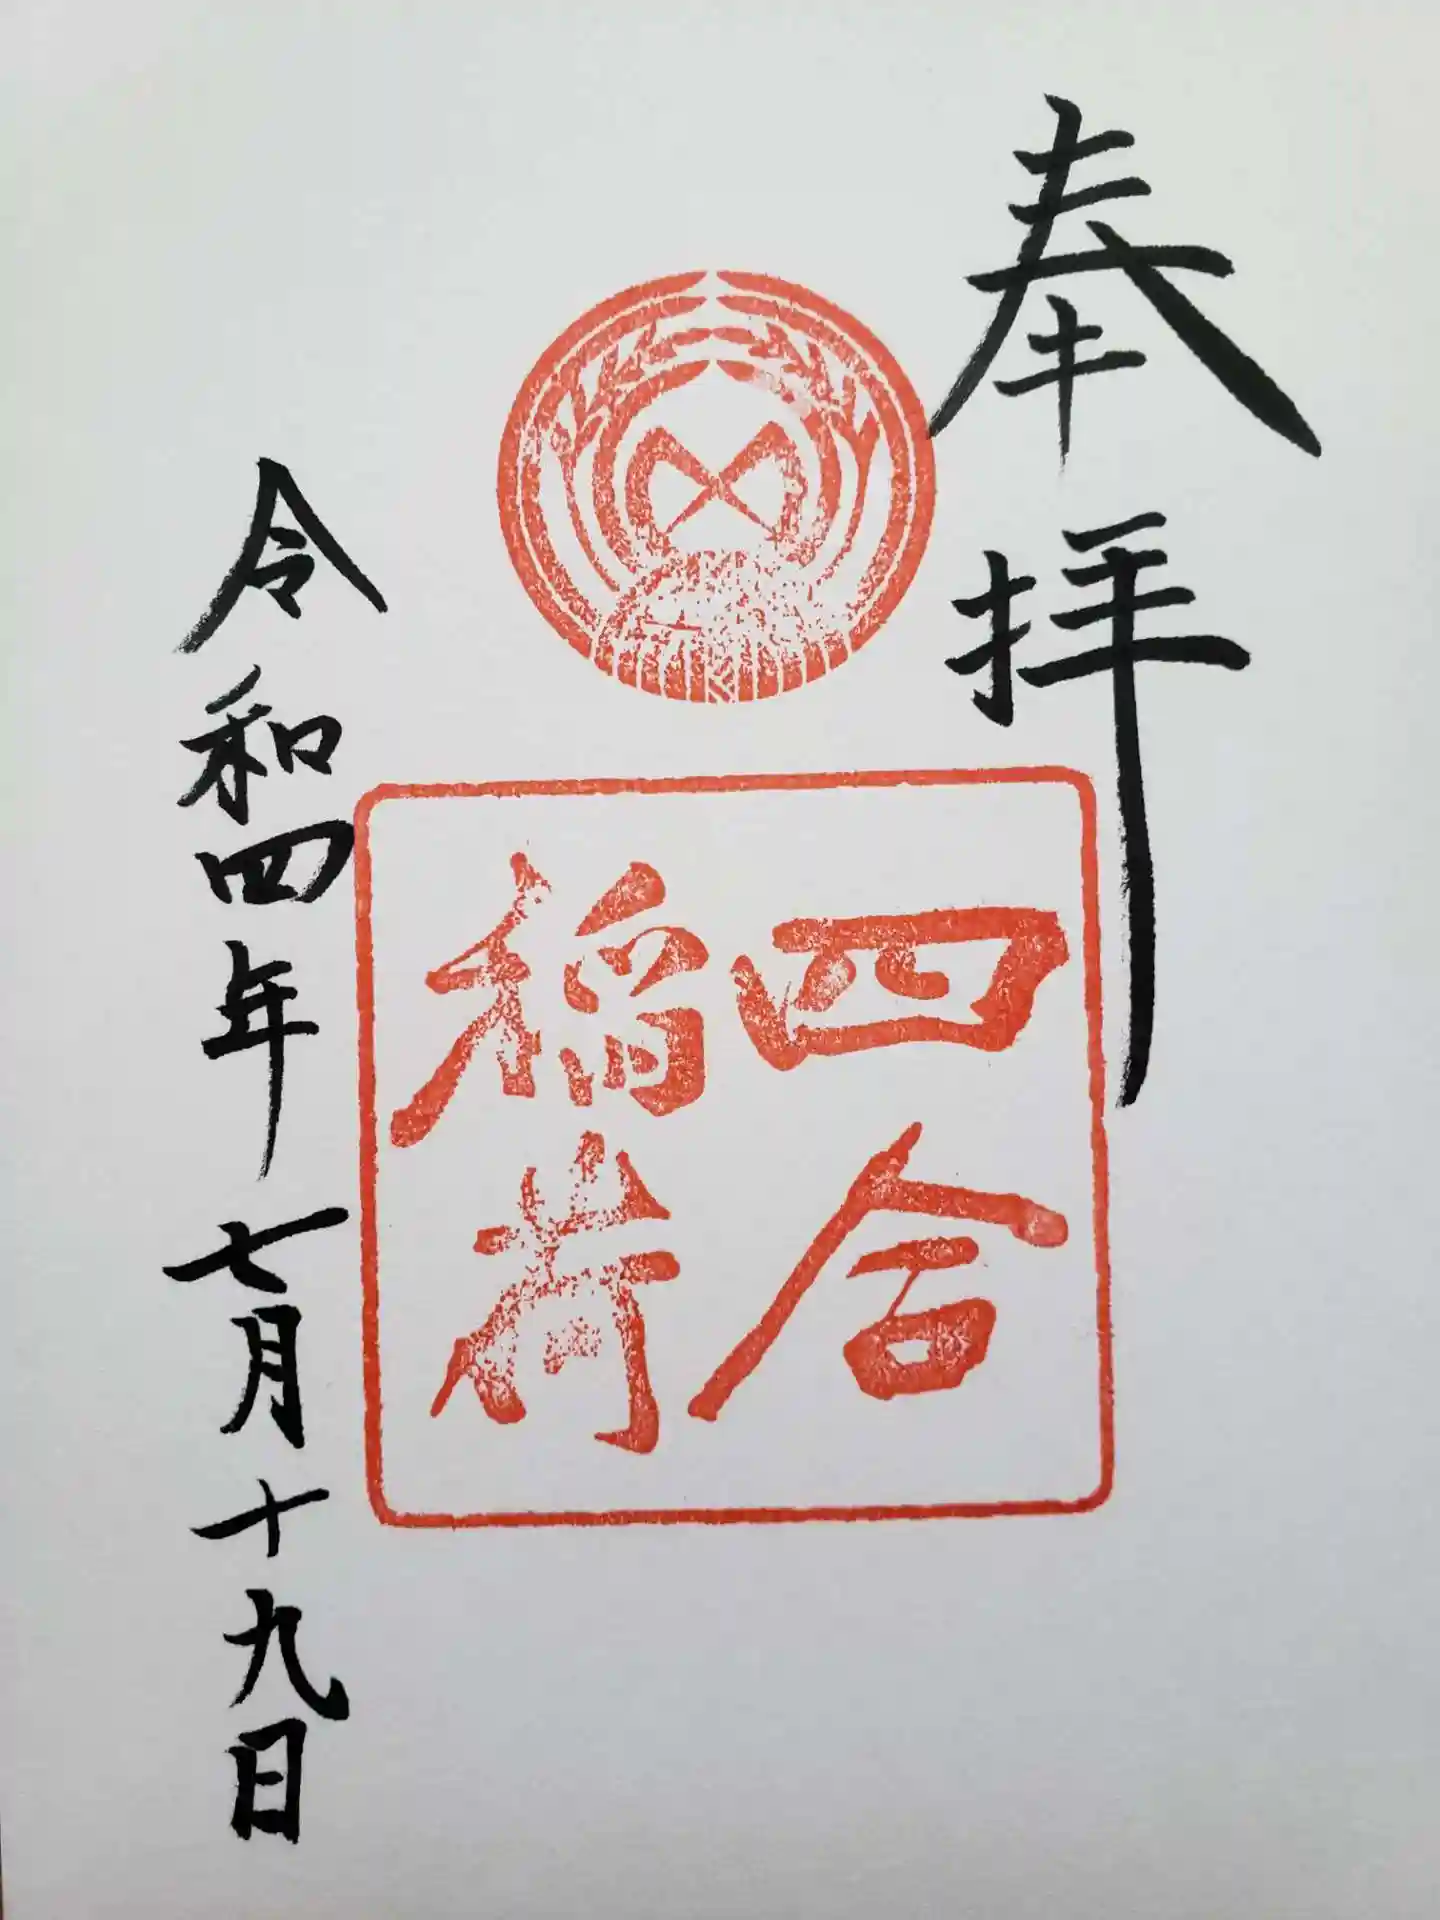 奉拝
四合
稲荷
令和四年七月十九日